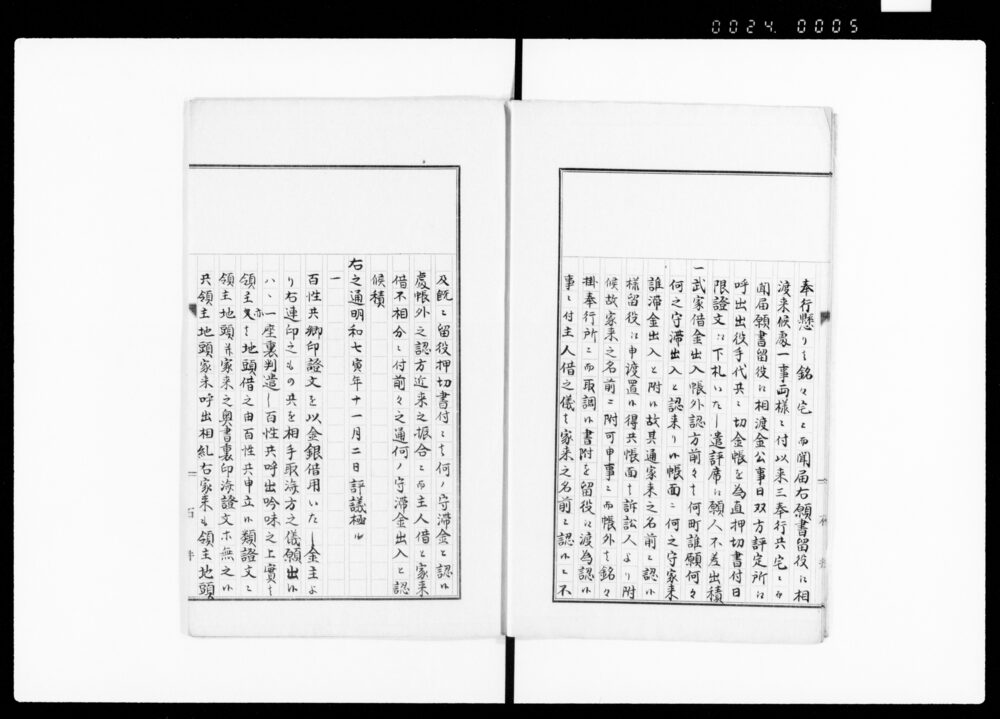 0024. 0005
奉行懸りニ而銘々宅ニ而聞届右願書留役江相
渡来候處一事両様ニ付以来三奉行共宅ニ而
聞届願書留役江相渡金公事日双方評定所江
呼出出役手代共ニ切金帳を為直押切書付日
限證文江下札いたし遣評席江願人不差出積
一武家借金出入帳外認方前々者何町誰願何々
何之守滞出入と認来り候帳面ニ何之守家来
誰滞金出入と附候故其通家来之名前ニ認候
様留役江申渡置候得共帳面者訴訟人より附
候故家来之名前ニ附可申事ニ而帳外者銘々
掛奉行所ニ而取調候書附を留役江渡為認候
事ニ付主人借之儀を家来之名前ニ認候と不
及既ニ留役押切書付ニ者何ノ守滞金と認候
處帳外之認方近来之振合ニ而主人借と家来
借不相分ニ付前々之通何ノ守滞金出入と認
候積
右之通明和七寅年十一月二日評議極ル
一
百性共郷印證文を以金銀借用いたし金主よ
り右連印之もの共を相手取済方之儀願出候
ハヽ一座裏判遣し百性共呼出吟味之上實者
領主又者地頭借之由百性共申立候類證文ニ
領主地頭并家来之奥書裏印済證文ホ無之候
共領主地頭家来呼出相糺右家来も領主地頭